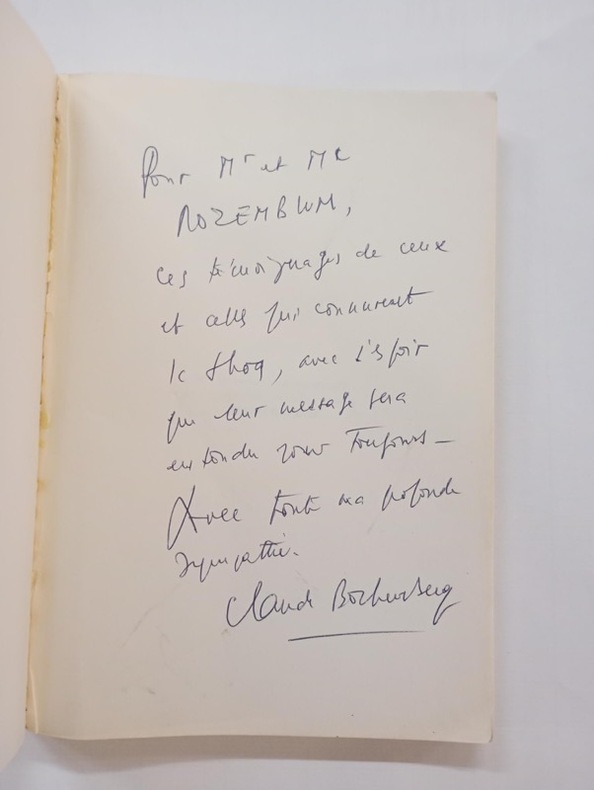 Pour Mr et Me
ROZEMBLUM,
ces témoignages de ceux
et celles qui connurent
la Shoa, avec l'espoir
que leur message sera
entendu pour Toujours —
Avec toute ma profonde
sympathie.
Claude Bochurberg